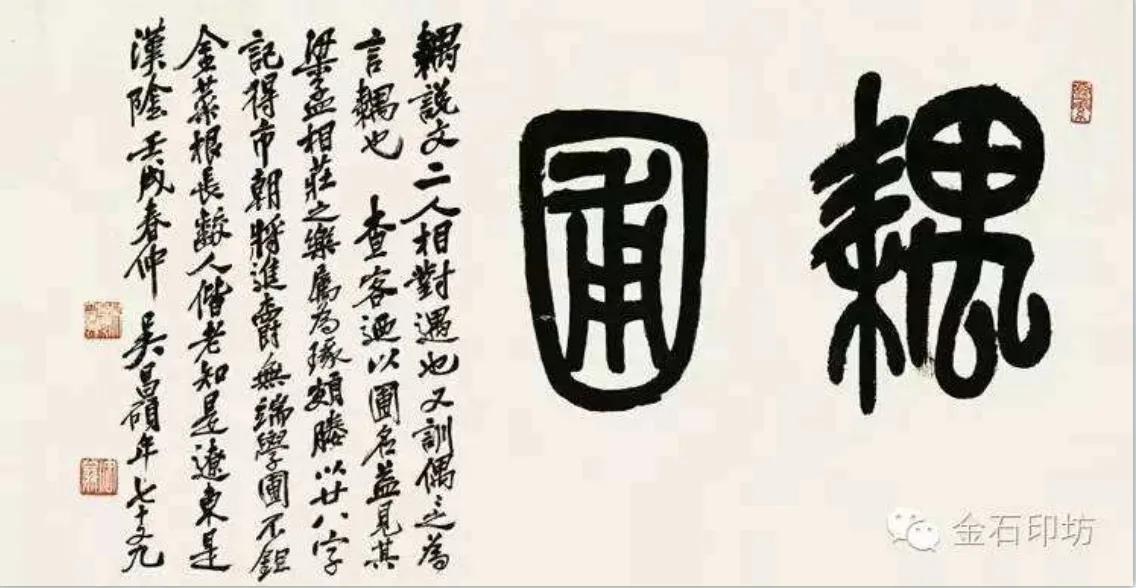 耦圃
耦說文二人相對遇也又訓偶〻之為
言耦也 查客迺以圃名益見其
梁孟相莊之樂屬為琢頗媵以廿八字
記得市朝將進爵無端學圃不鉏
金菜根長齩人偕老知是遼東是
漢陰壬戌春仲 吳昌碩年七十又九
金石印坊